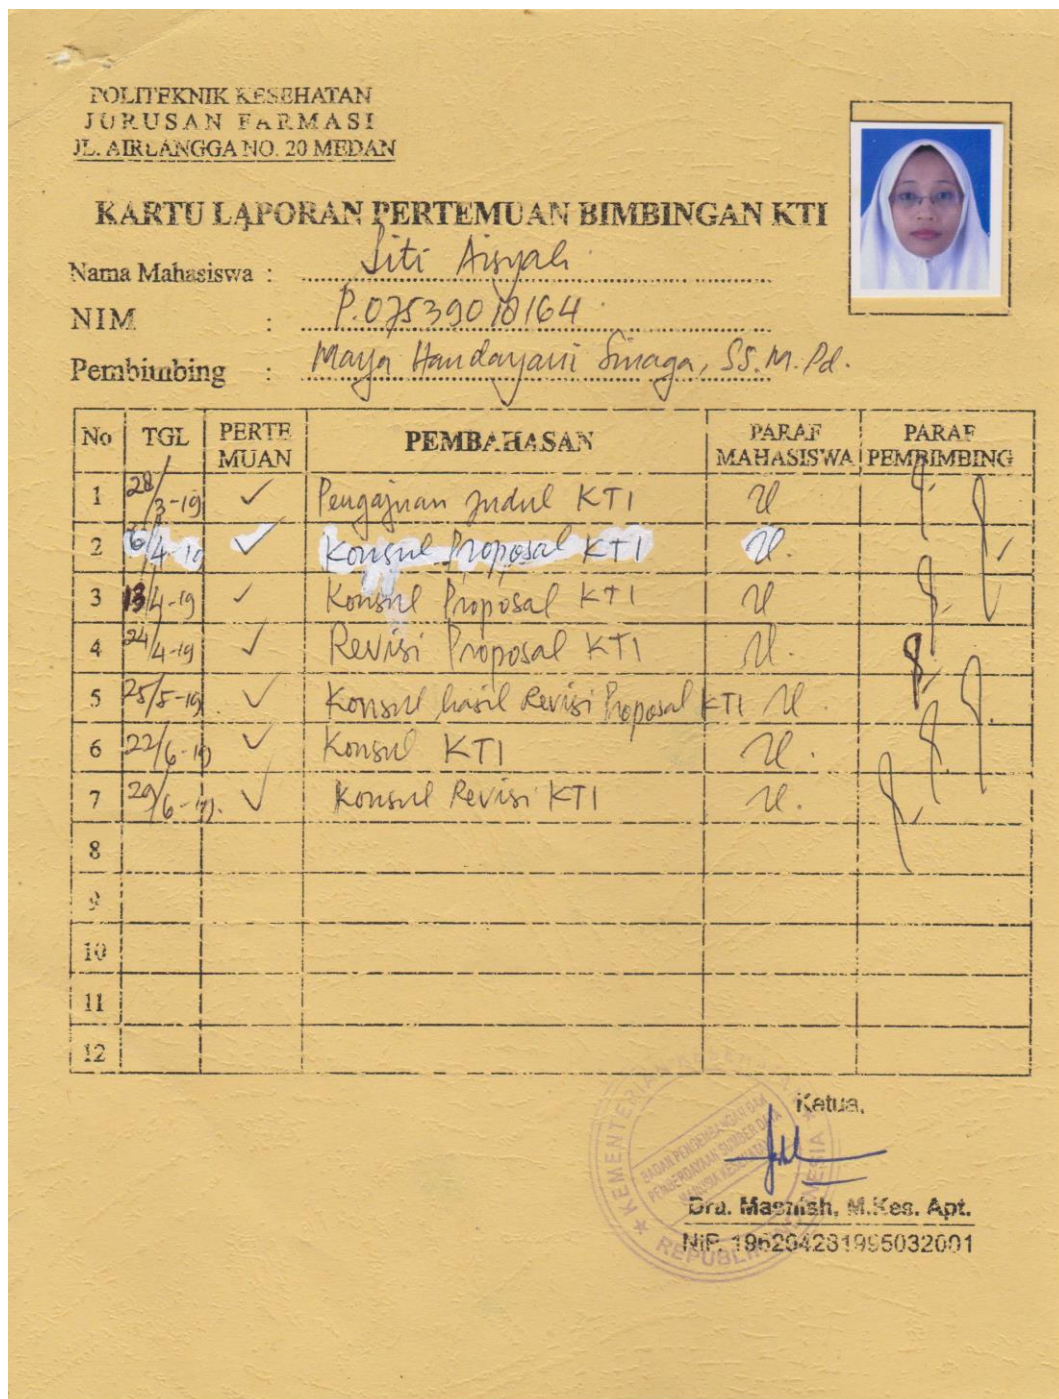 POLITEKNIK KESEHATAN
JURUSAN FARMASI
JL. AIRLANGGA NO. 20 MEDAN
KARTU LAPORAN PERTEMUAN BIMBINGAN KTI
Nama Mahasiswa : Siti Aisyah
NIM : P.07539018164
Pembimbing : Maya Handayani Sinaga, SS.M.Pd.
No TGL PERTE MUAN PEMBAHASAN PARAF MAHASISWA PARAF PEMBIMBING
1 28/3-19 ✓ Pengajuan Judul KTI
2 6/4-19 ✓ Konsul Proposal KTI
3 13/4-19 ✓ Konsul Proposal KTI
4 24/4-19 ✓ Revisi Proposal KTI
5 25/5-19 ✓ Konsul hasil Revisi Proposal KTI
6 22/6-19 ✓ Konsul KTI
7 29/6-19. ✓ Konsul Revisi KTI
8
9
10
11
12
Ketua,
KEMENTERIAN KESEHATAN
BADAN PENGEMBANGAN DAN
PEMBERDAYAAN SUMBER DAYA
MANUSIA KESEHATAN
REPUBLIK INDONESIA
Dra. Masniah, M.Kes. Apt.
NIP. 196204281995032001